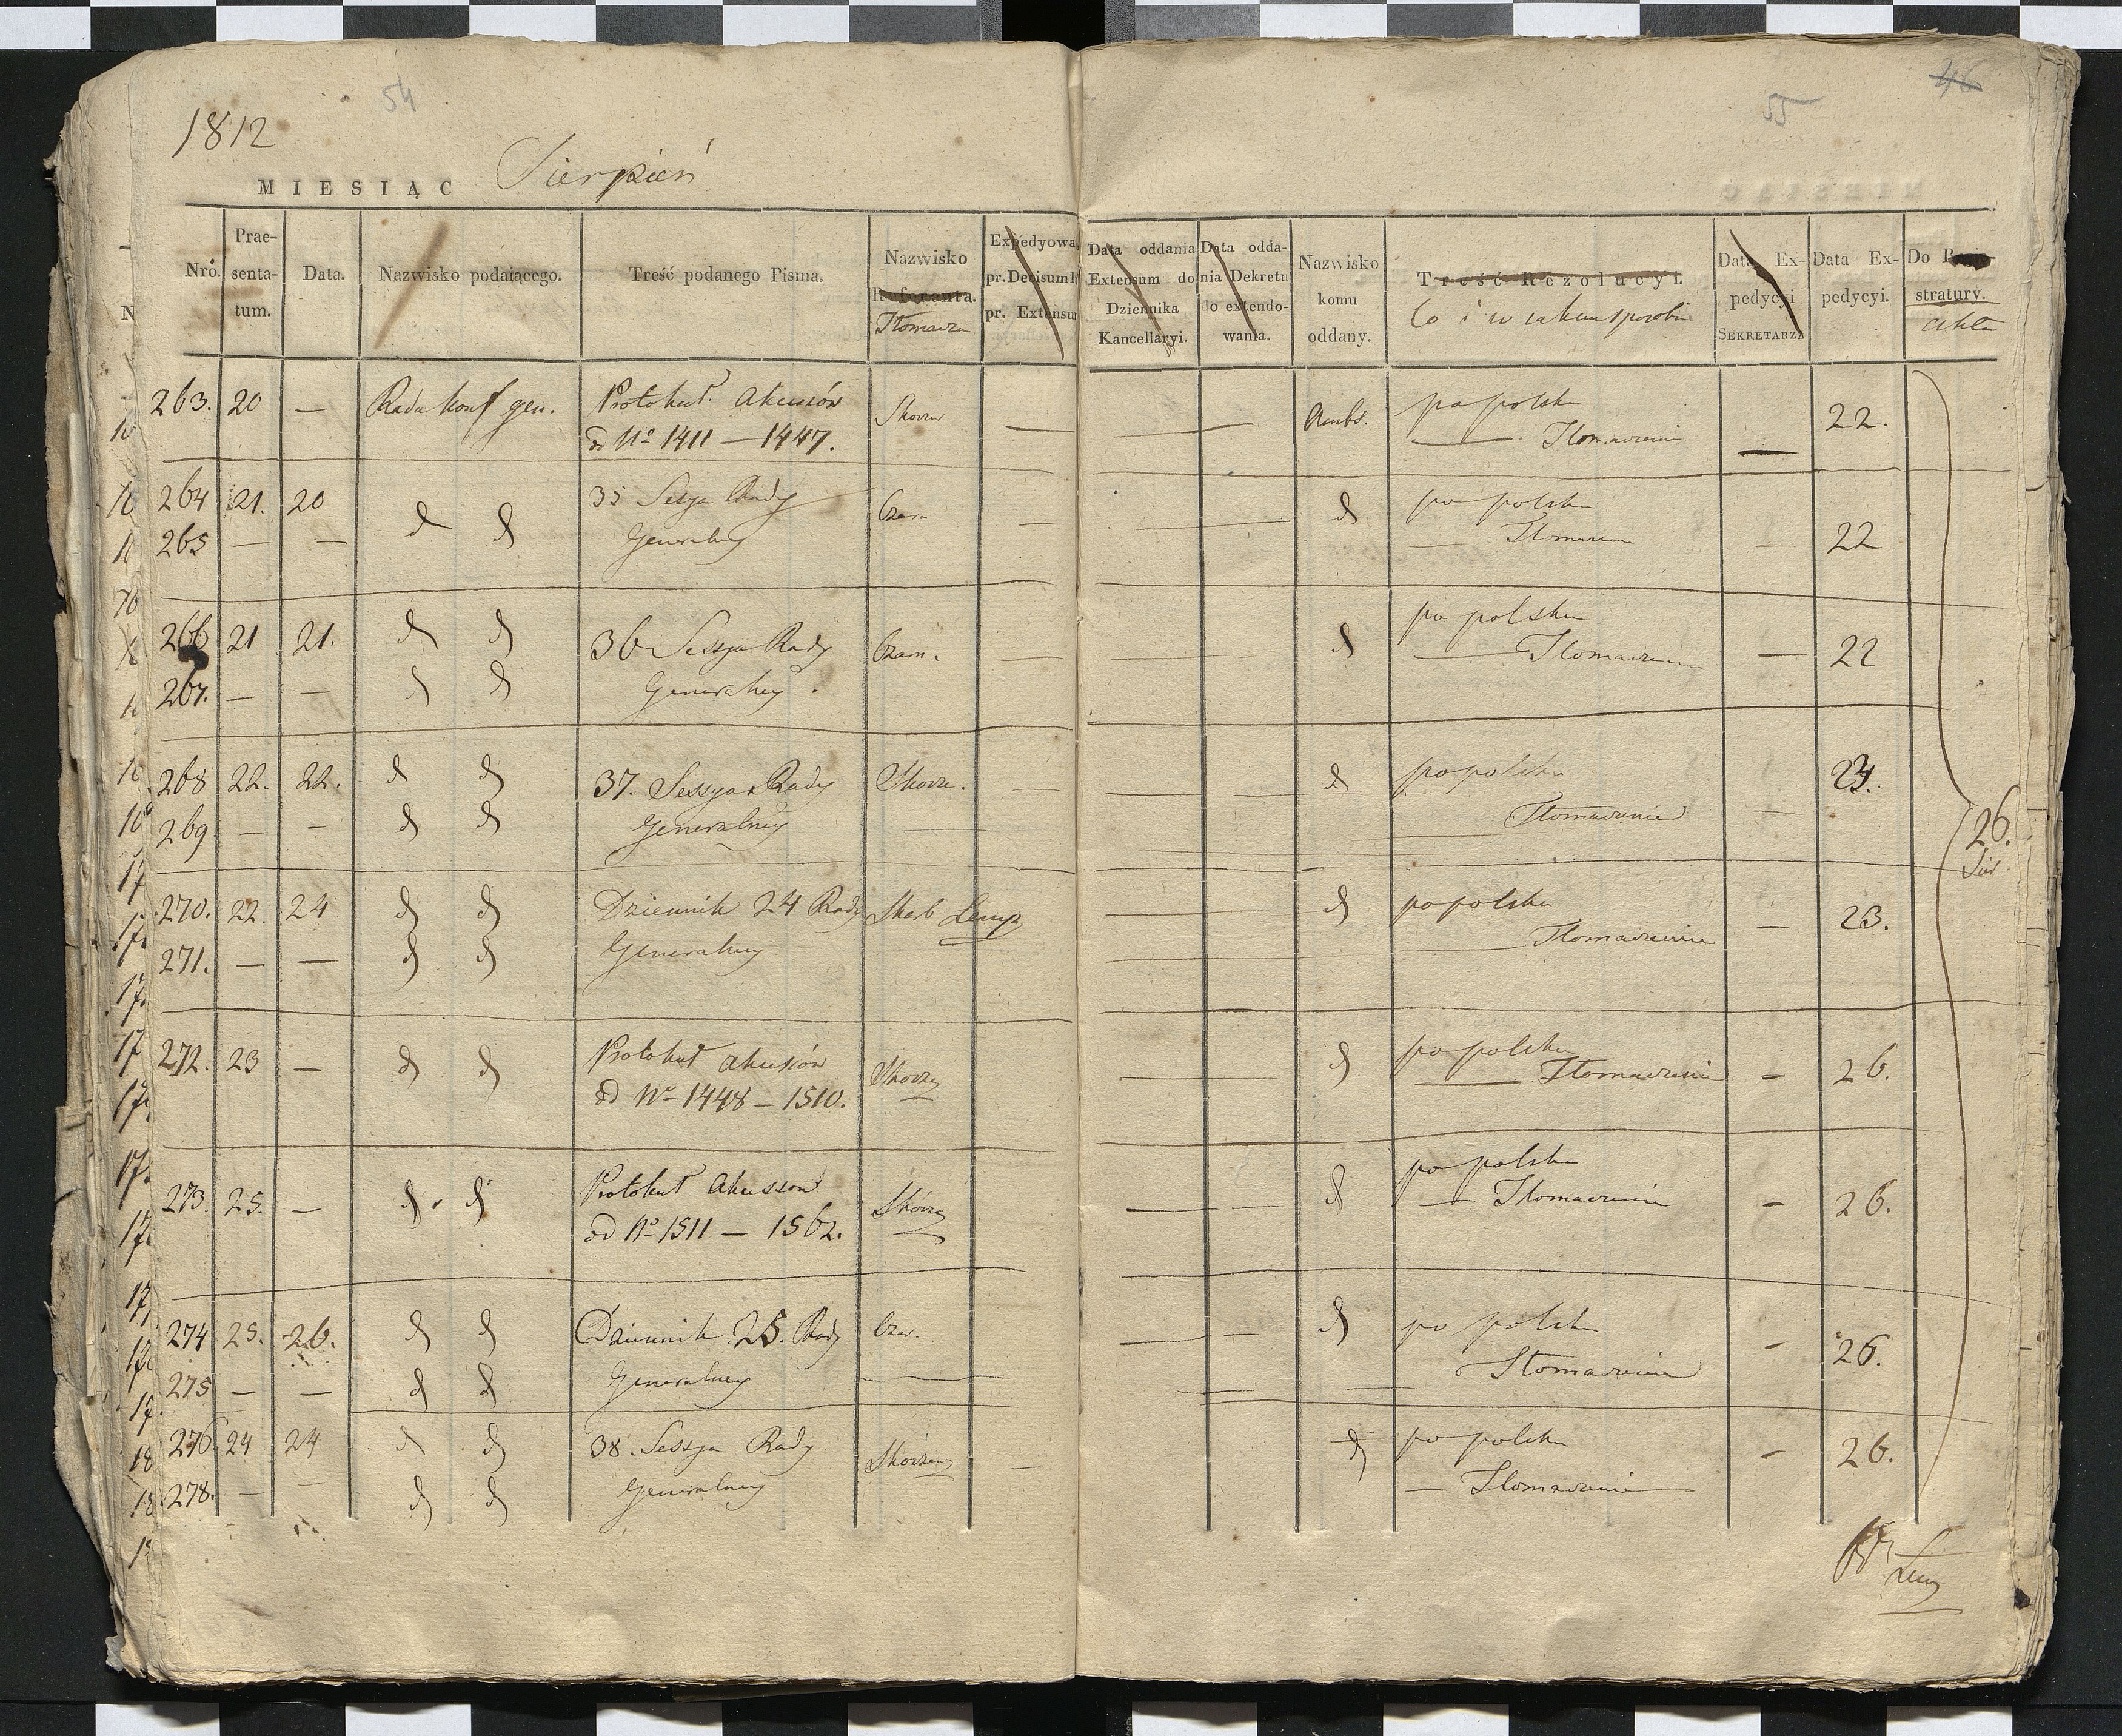 54
1812
MIESIĄC Sierpień
Nro.
Prae-
senta-
tum.
Data.
Nazwisko podaiącego.
Treść podanego Pisma.
Nazwisko
Referenta.
Tłomacza
Expedyowa
pr. Decisum l
pr. Extensu
263. 20 — Rada konf gen. Protokuł Akcessów
od No 1411 — 1447. Skorze
264 21. 20 d d 35 Sesya Rady
265 — — Generalney Czarn
266 21 21. d d 36 Sessya Rady Czarn.
267. — — d d Generalney.
268 22. 22. d d 37. Sessya Rady Skorze.
269 — — d d Generalney
270. 22. 24 d d Dziennik 24 Rady Skarb Lemp
271. — — d d Generalney
272. 23 — d d Protokuł Akcessów
od No 1448 — 1510. Skorze
273. 25. — d d Protokuł Akcessów
od No 1511 — 1562. Skórze
274 25. 26. d d Dziennik 25. Rady Czar.
275 — — d d Generalney
276 24 24 d d 38. Sessya Rady Skórze
278. — — d d Generalney
46
55
Data oddania
Extensum do
Dziennika
Kancellaryi.
Data odda-
nia Dekretu
do extendo-
wania.
Nazwisko
komu
oddany.
Treść Rezolucyi.
Co i w iakim sposobie
Data Ex-
pedycyi
SEKRETARZA
Data Ex-
pedycyi.
Do
stratury.
Akta
Amb. po polsku
— Tłomaczenie — 22.
d po polsku
— Tłomaczenie — 22
d po polsku
— Tłomaczenie — 22
d po polsku 23.
— Tłomaczenie —
26.
Sier.
d po polsku
— Tłomaczenie — 23.
d po polsku
— Tłomaczenie — 26.
d po polsku
— Tłomaczenie — 26.
d po polsku
Tłomaczenie — 26.
d po polsku — 26.
— Tłomaczenie